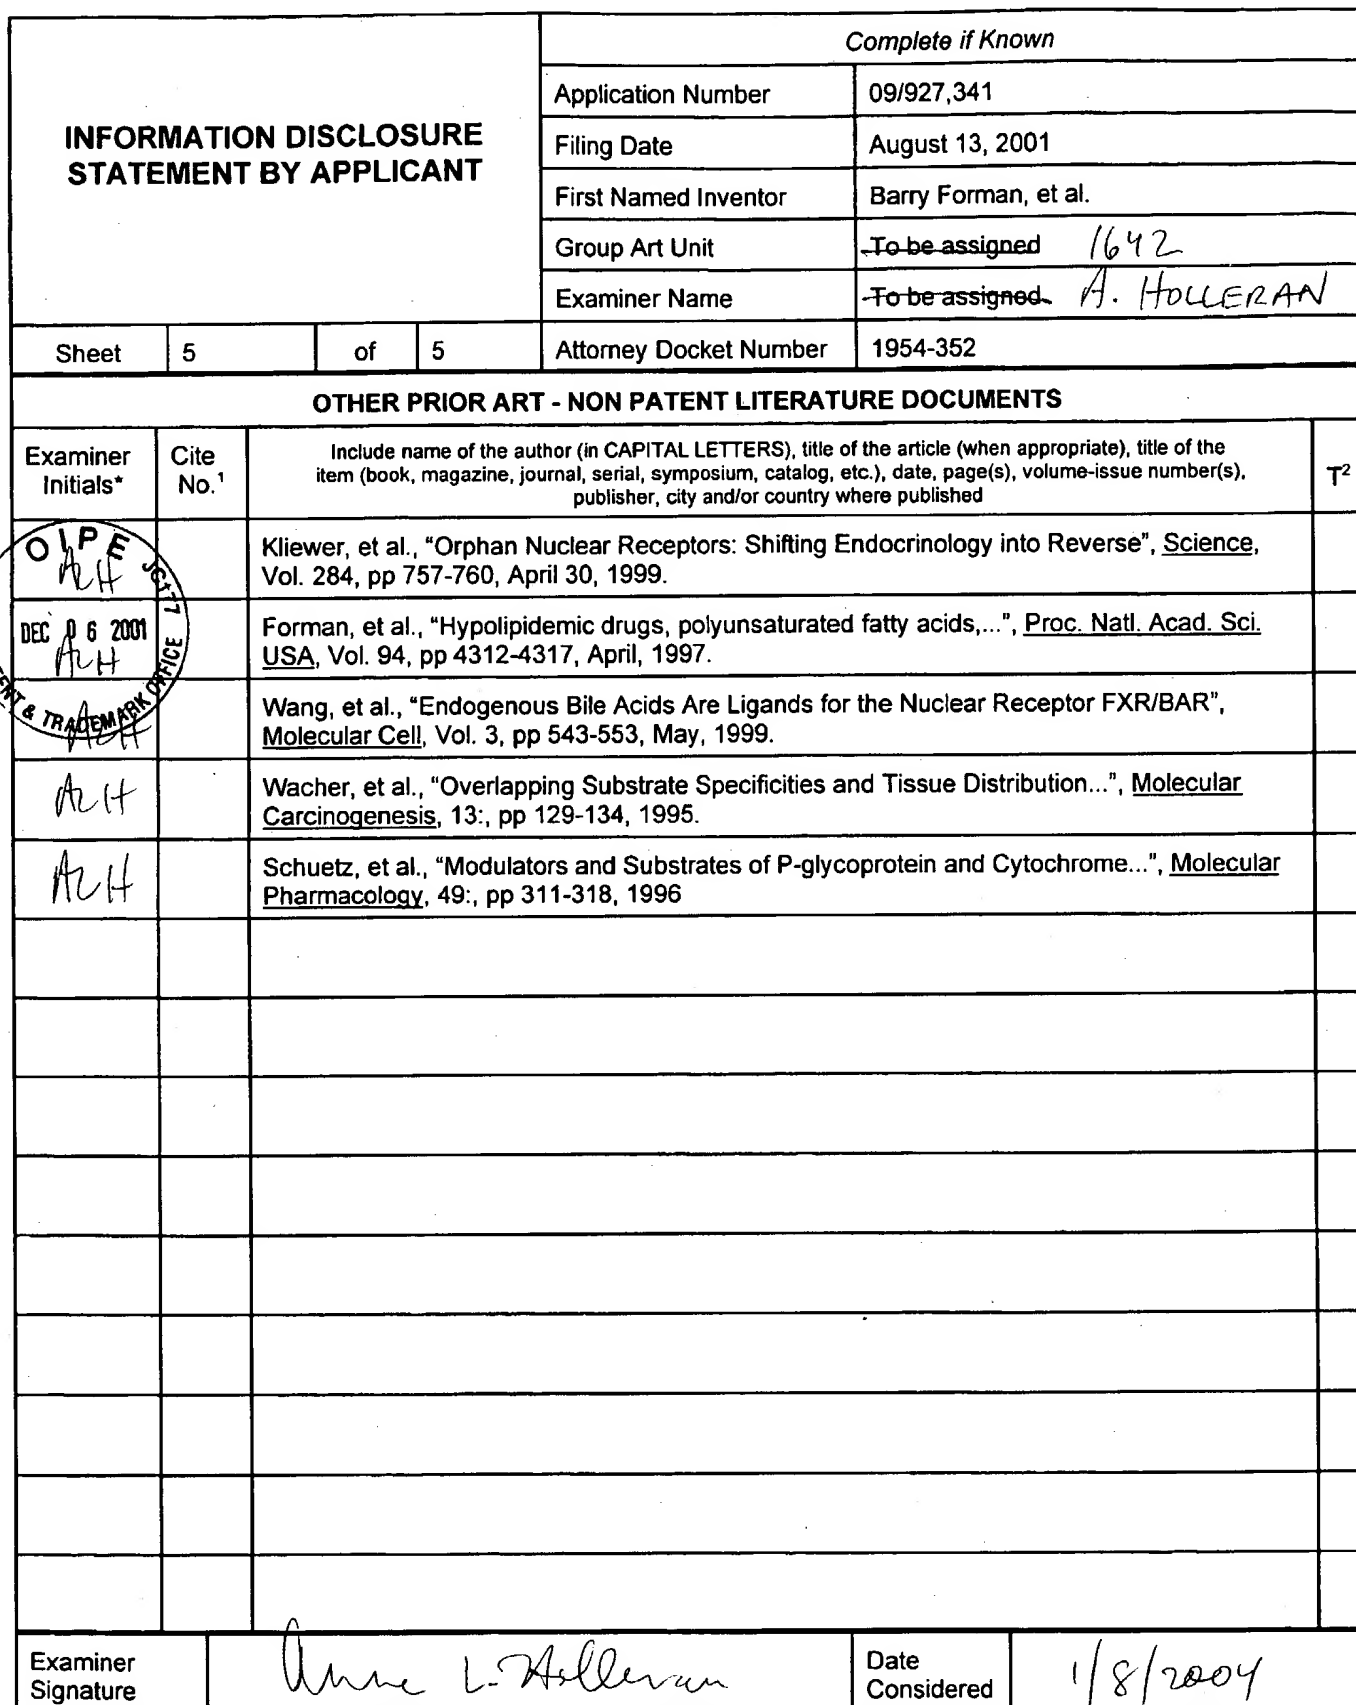 INFORMATION DISCLOSURE
STATEMENT BY APPLICANT
Complete if Known
Application Number 09/927,341
Filing Date August 13, 2001
First Named Inventor Barry Forman, et al.
Group Art Unit To be assigned 1642
Examiner Name To be assigned A. HOLLERAN
Sheet 5 of 5 Attorney Docket Number 1954-352
OTHER PRIOR ART - NON PATENT LITERATURE DOCUMENTS
Examiner
Initials*
Cite
No.¹
Include name of the author (in CAPITAL LETTERS), title of the article (when appropriate), title of the
item (book, magazine, journal, serial, symposium, catalog, etc.), date, page(s), volume-issue number(s),
publisher, city and/or country where published
T²
OIPE
JC177
DEC 06 2001
& TRADEMARK OFFICE
ALH
Kliewer, et al., “Orphan Nuclear Receptors: Shifting Endocrinology into Reverse”, Science,
Vol. 284, pp 757-760, April 30, 1999.
ALH
Forman, et al., “Hypolipidemic drugs, polyunsaturated fatty acids,...”, Proc. Natl. Acad. Sci.
USA, Vol. 94, pp 4312-4317, April, 1997.
ALH
Wang, et al., “Endogenous Bile Acids Are Ligands for the Nuclear Receptor FXR/BAR”,
Molecular Cell, Vol. 3, pp 543-553, May, 1999.
ALH
Wacher, et al., “Overlapping Substrate Specificities and Tissue Distribution...”, Molecular
Carcinogenesis, 13:, pp 129-134, 1995.
ALH
Schuetz, et al., “Modulators and Substrates of P-glycoprotein and Cytochrome...”, Molecular
Pharmacology, 49:, pp 311-318, 1996
Examiner
Signature
Anne L. Holleran
Date
Considered
1/8/2004